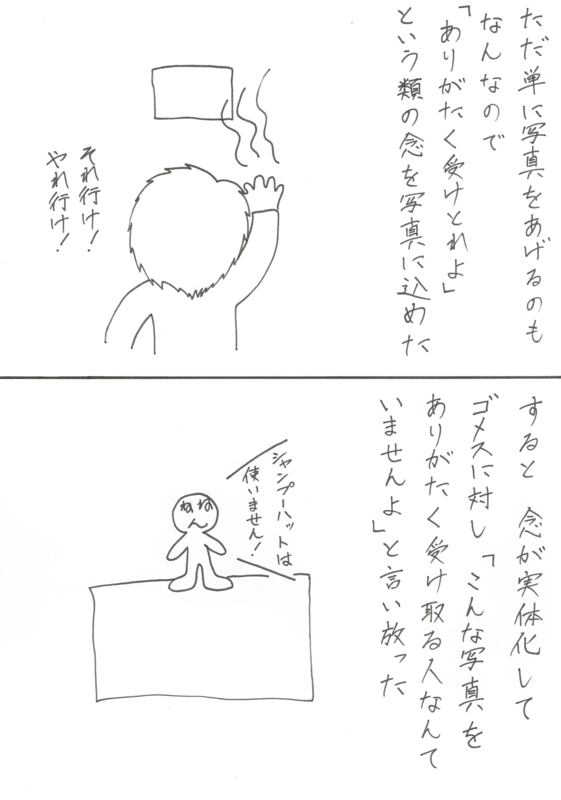 ただ単に写真をあげるのも
なんなので
「ありがたく受けとれよ」
という類の念を写真に込めた
それ行け!
やれ行け!
すると 念が実体化して
ゴメスに対し「こんな写真を
ありがたく受け取る人なんて
いませんよ」と言い放った
シャンプーハットは
使いません!
ねね
ん